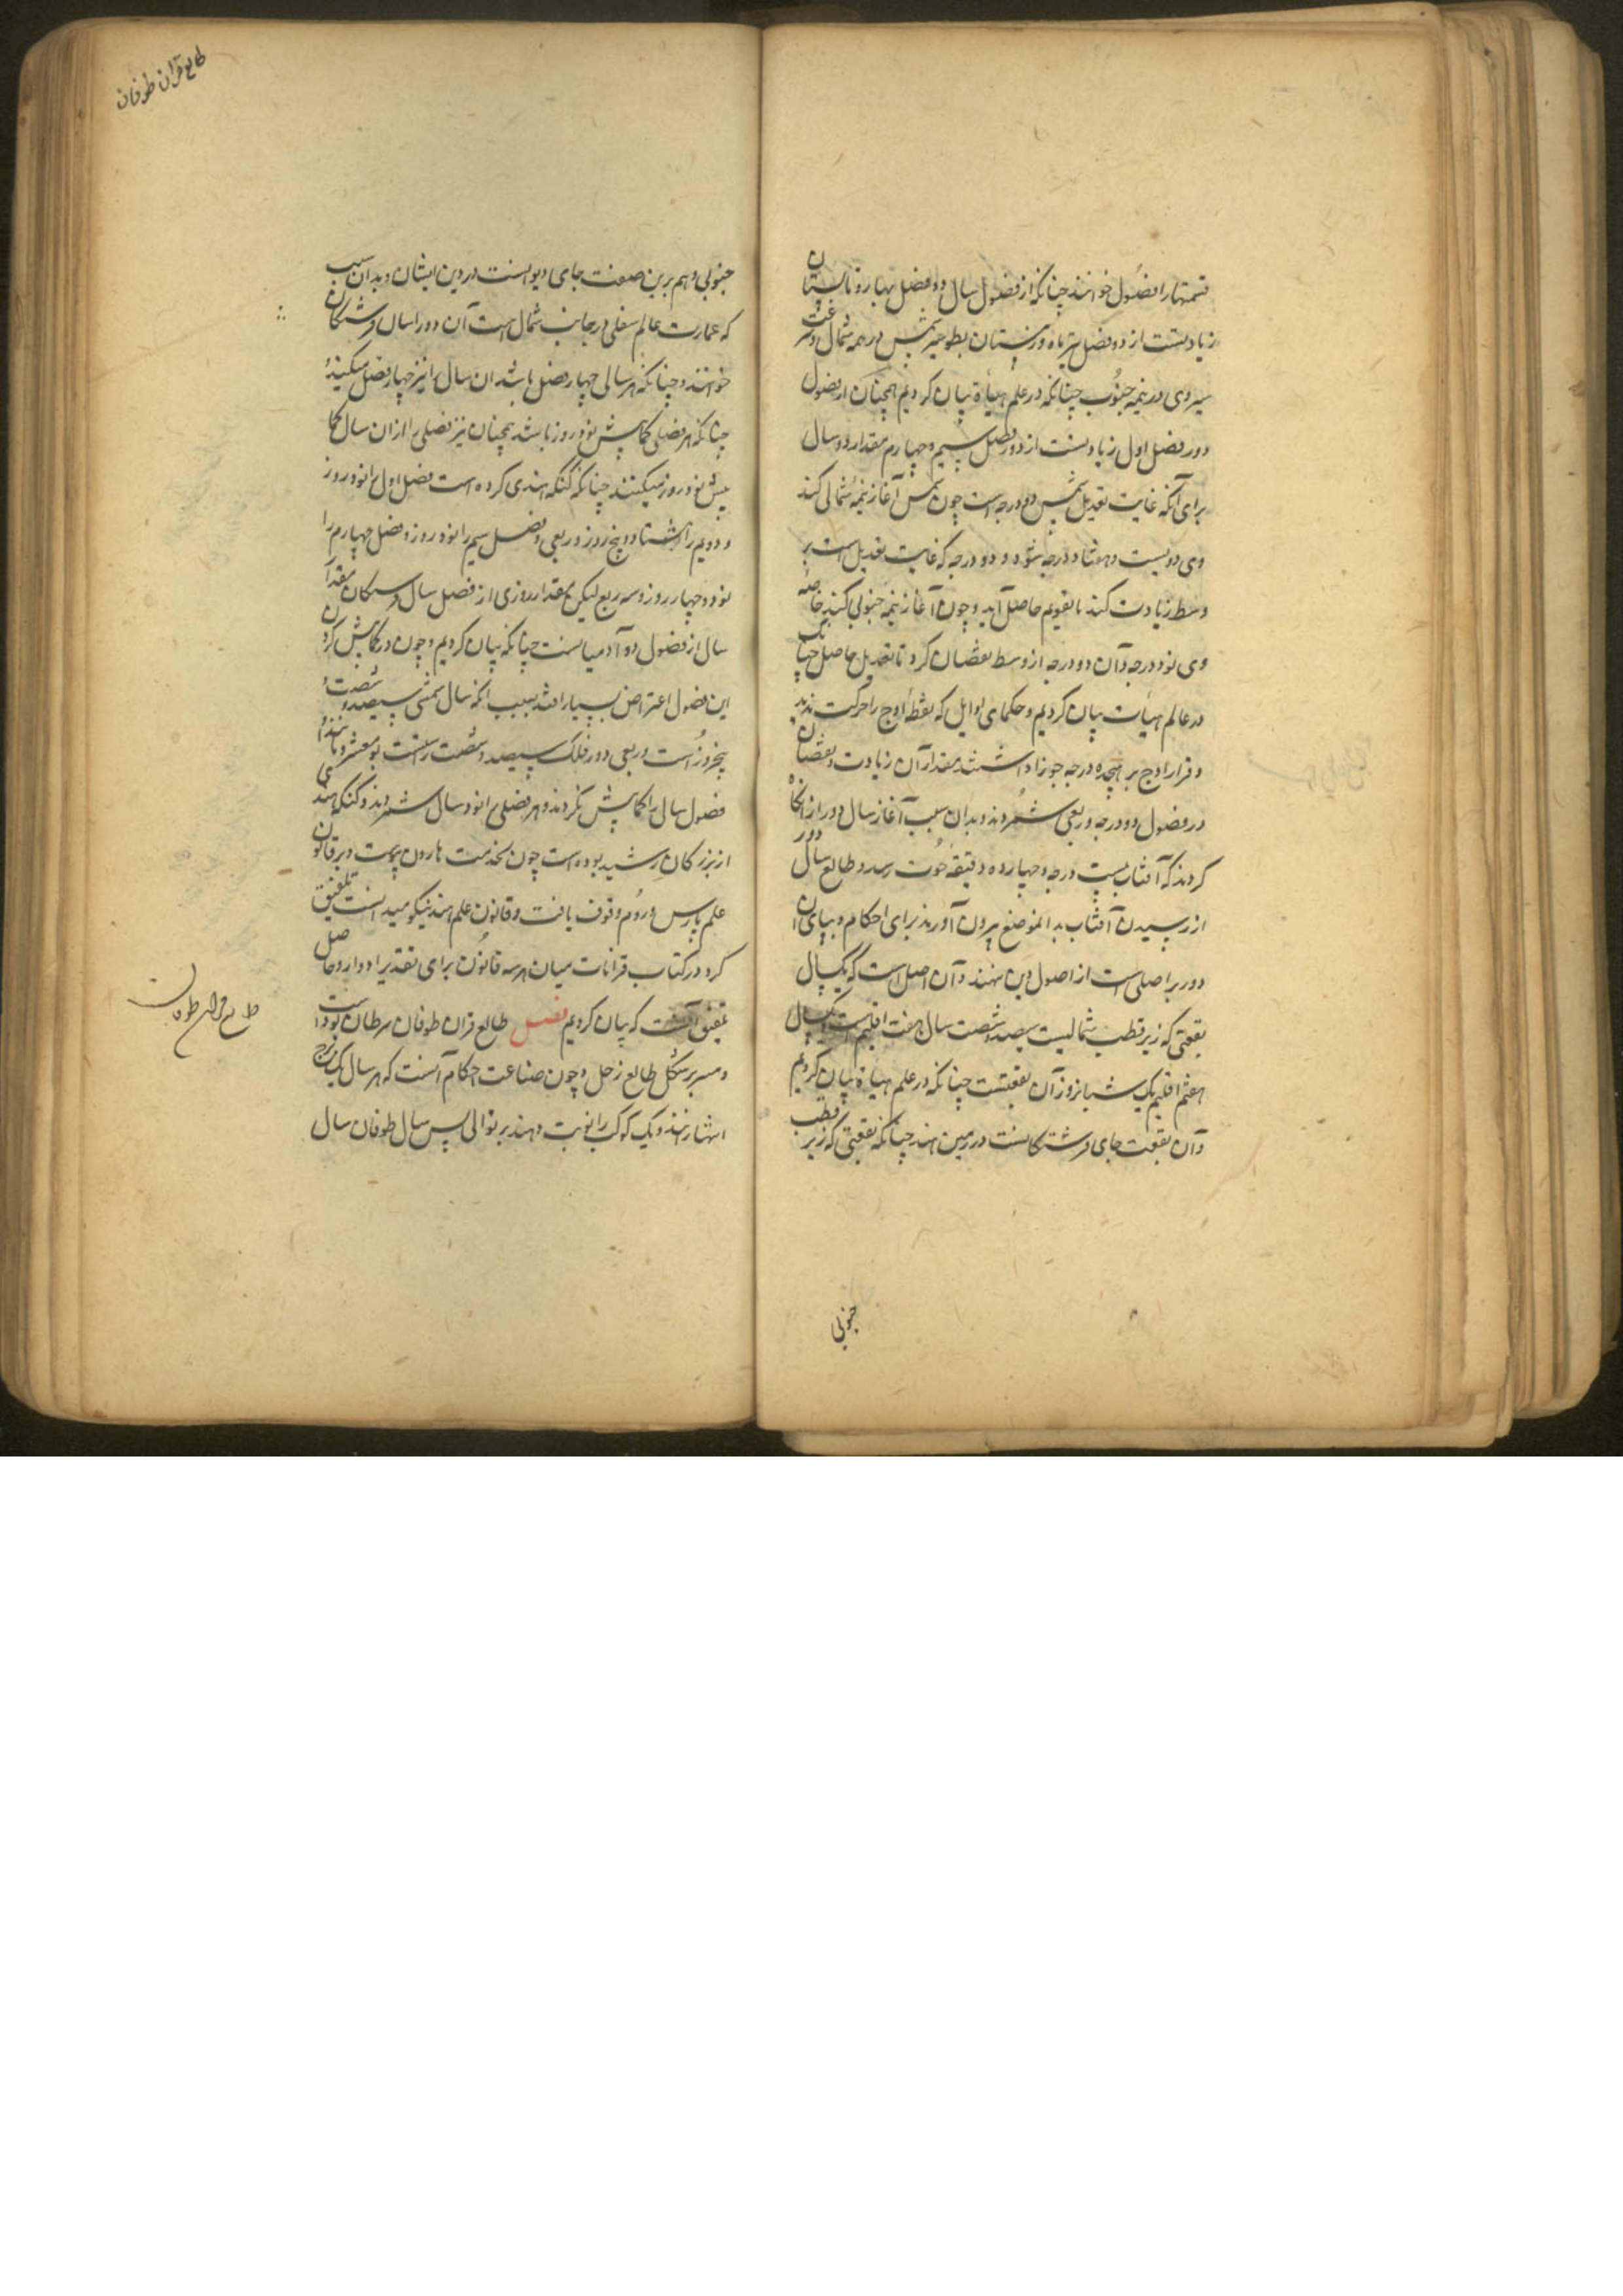 قسمتها را فصول خوانند چنانکه از فصول سال دو فصل بهار و تابستان
زیادتست از دو فصل تیرماه و زمستان ببطو سیر شمس در نیمه شمال و سرعت
سیر وی در نیمه جنوب چنانکه در علم هیأة بیان کردیم همچنان از فصول
دور فصل اول زیادتست از دور فصل سیم و چهارم بمقدار دو سال
برای آنکه غایت تعدیل شمس دو درجه است چون شمس آغاز نیمه شمالی کند
وی دویست و هفتاد درجه شود و دو درجه که غایت تعدیل است بر
وسط زیادت کند تا تقویم حاصل آید و چون آغاز نیمه جنوبی کند خاصه
وی نود درجه و آن دو درجه از وسط نقصان کرد تا تعدیل حاصل چنانک
در عالم هیأت بیان کردیم و حکمای اوایل که نقطه اوج را حرکت ندیدند
و قرار اوج بر هیجده درجه جوزا داشتند مقدار آن زیادت و نقصان
در فصول دو درجه و ربعی شمردند و بدان سبب آغاز سال دور از آنگاه
کردند که آفتاب به بیست درجه و چهارده دقیقه حوت رسد و طالع سال دور
از رسیدن آفتاب بدالموضع بیرون آورند برای احکام و بیای آن
دور بر اصلی است از اصول دین نهند و آن اصل است که یکسال
بقعتی که زیر قطب شمالیست سیصد و شصت سال هفت اقلیم است و یکسال
هفتم اقلیم یک شبانروز آن بقعتست چنانکه در علم هیأة بیان کردیم
و آن بقعت جای فرشتگانست در زمین هند چنانکه بقعتی که زیر قطب
جنوبی
طالع قرآن طوفان
جنوبی و هم برین صفت جای دیوانست در دین ایشان و بدان سبب
که عمارت عالم سفلی در جانب شمال است آن دور را سال فرشتگان
خوانند و چنانکه هر سالی چهار فصل باشد آن سال را نیز چهار فصل میکنند
چنانکه هر فصلی کمابیش نود روز باشد همچنان نیز فصلی را از آن سال کما
بیش نود روز میکنند چنانکه کنکه هندی کرده است فصل اول را نود روز
و دویم را هشتاد و پنج روز و ربعی و فصل سیم را نود روز و فصل چهارم را
نود و چهار روز و سه ربع لیکن بمقدار روزی از فصل سال فرشتگان مقدار
سال از فصول دور آدمیانست چنانکه بیان کردیم و چون در کمابیش کردن
این فصول اعتراض بسیار افتد بسبب آنکه سال شمسی سیصد و شصت و
پنجروز است و ربعی و دور فلک سیصد و شصت راست بومعشر و مانند او
فصول سال را کمابیش نکردند و هر فصلی را نود سال شمردند و کنکه هندی
از بزرگان رشید بوده است چون بخدمت هارون پیوست و بر قانون
علم پارس و روم وقوف یافت و قانون علم هند نیکو میدانست تلفیق
کرد در کتاب قرانات میان هر سه قانون برای تقدیر ادوار و حاصل
تلفیق آنست که بیان کردیم فصل طالع قران طوفان سرطان بوده است
و مدبر شکل طالع زحل و چون صناعت احکام آنست که هر سال یک برج
انتها نهند و یک کوکب را نوبت دهند بر توالی پس سال طوفان سال
طالع قران طوفان